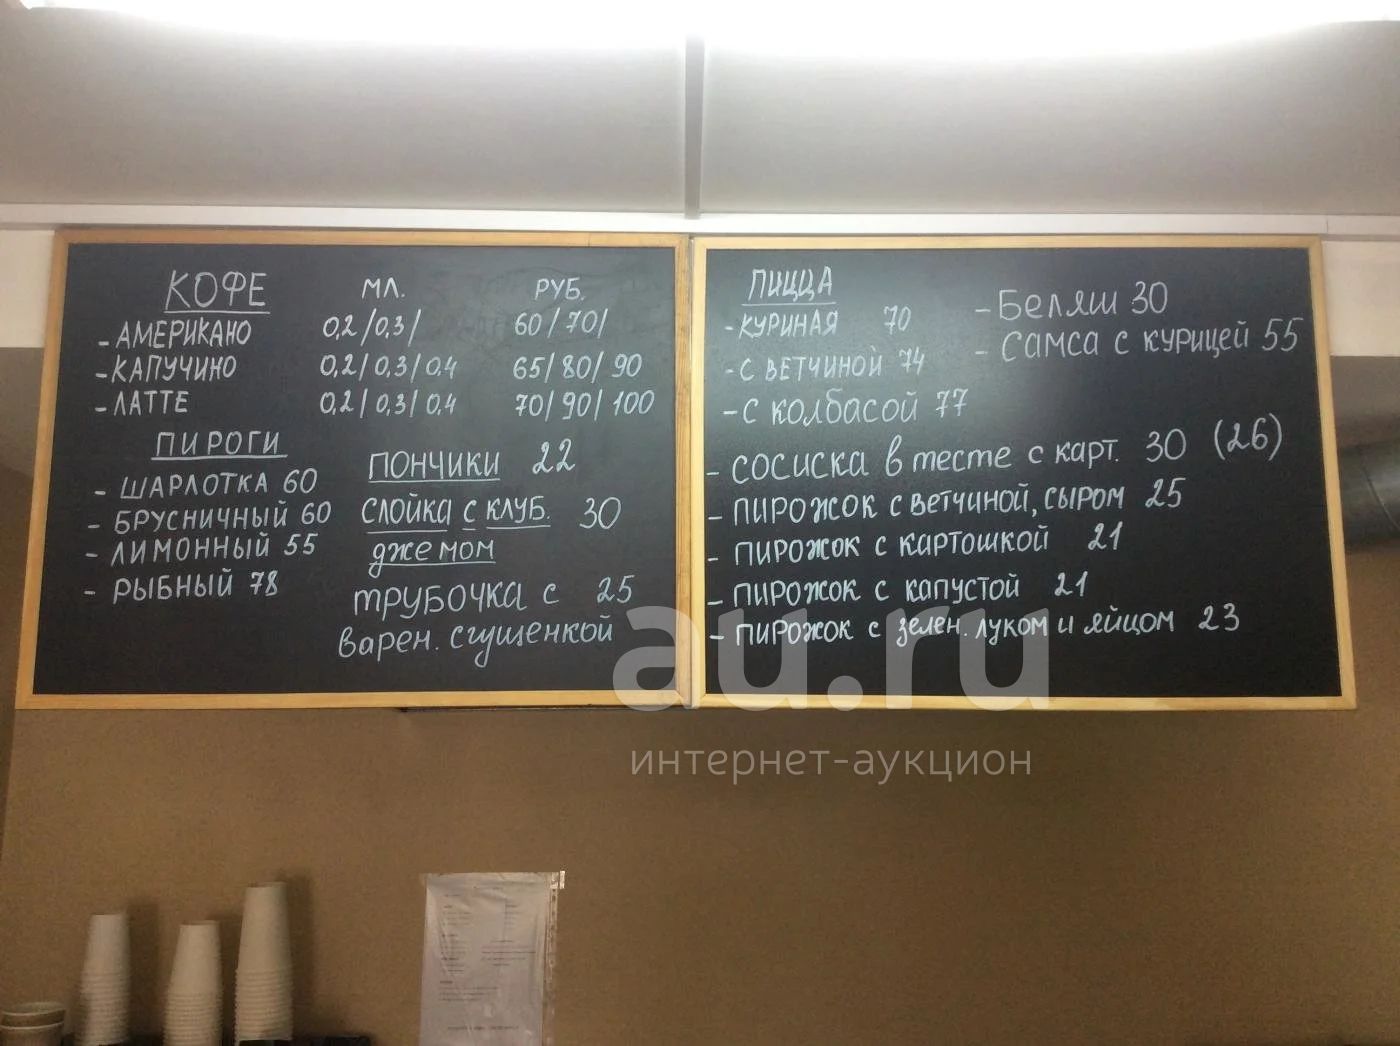 КОФЕ МЛ. РУБ.
- АМЕРИКАНО 0,2/0,3/ 60/70/
- КАПУЧИНО 0,2/0,3/0,4 65/80/90
- ЛАТТЕ 0,2/0,3/0,4 70/90/100
ПИРОГИ
- ШАРЛОТКА 60
- БРУСНИЧНЫЙ 60
- ЛИМОННЫЙ 55
- РЫБНЫЙ 78
ПОНЧИКИ 22
СЛОЙКА С КЛУБ. 30
джемом
ТРУБОЧКА С 25
варен. сгущенкой
ПИЦЦА
- КУРИНАЯ 70
- С ВЕТЧИНОЙ 74
- С колбасой 77
- Беляш 30
- Самса с курицей 55
- СОСИСКА в тесте с карт. 30 (26)
- ПИРОЖОК с ветчиной, сыром 25
- ПИРОЖОК с картошкой 21
- ПИРОЖОК с капустой 21
- ПИРОЖОК с зелен. луком и яйцом 23
au.ru
интернет-аукцион